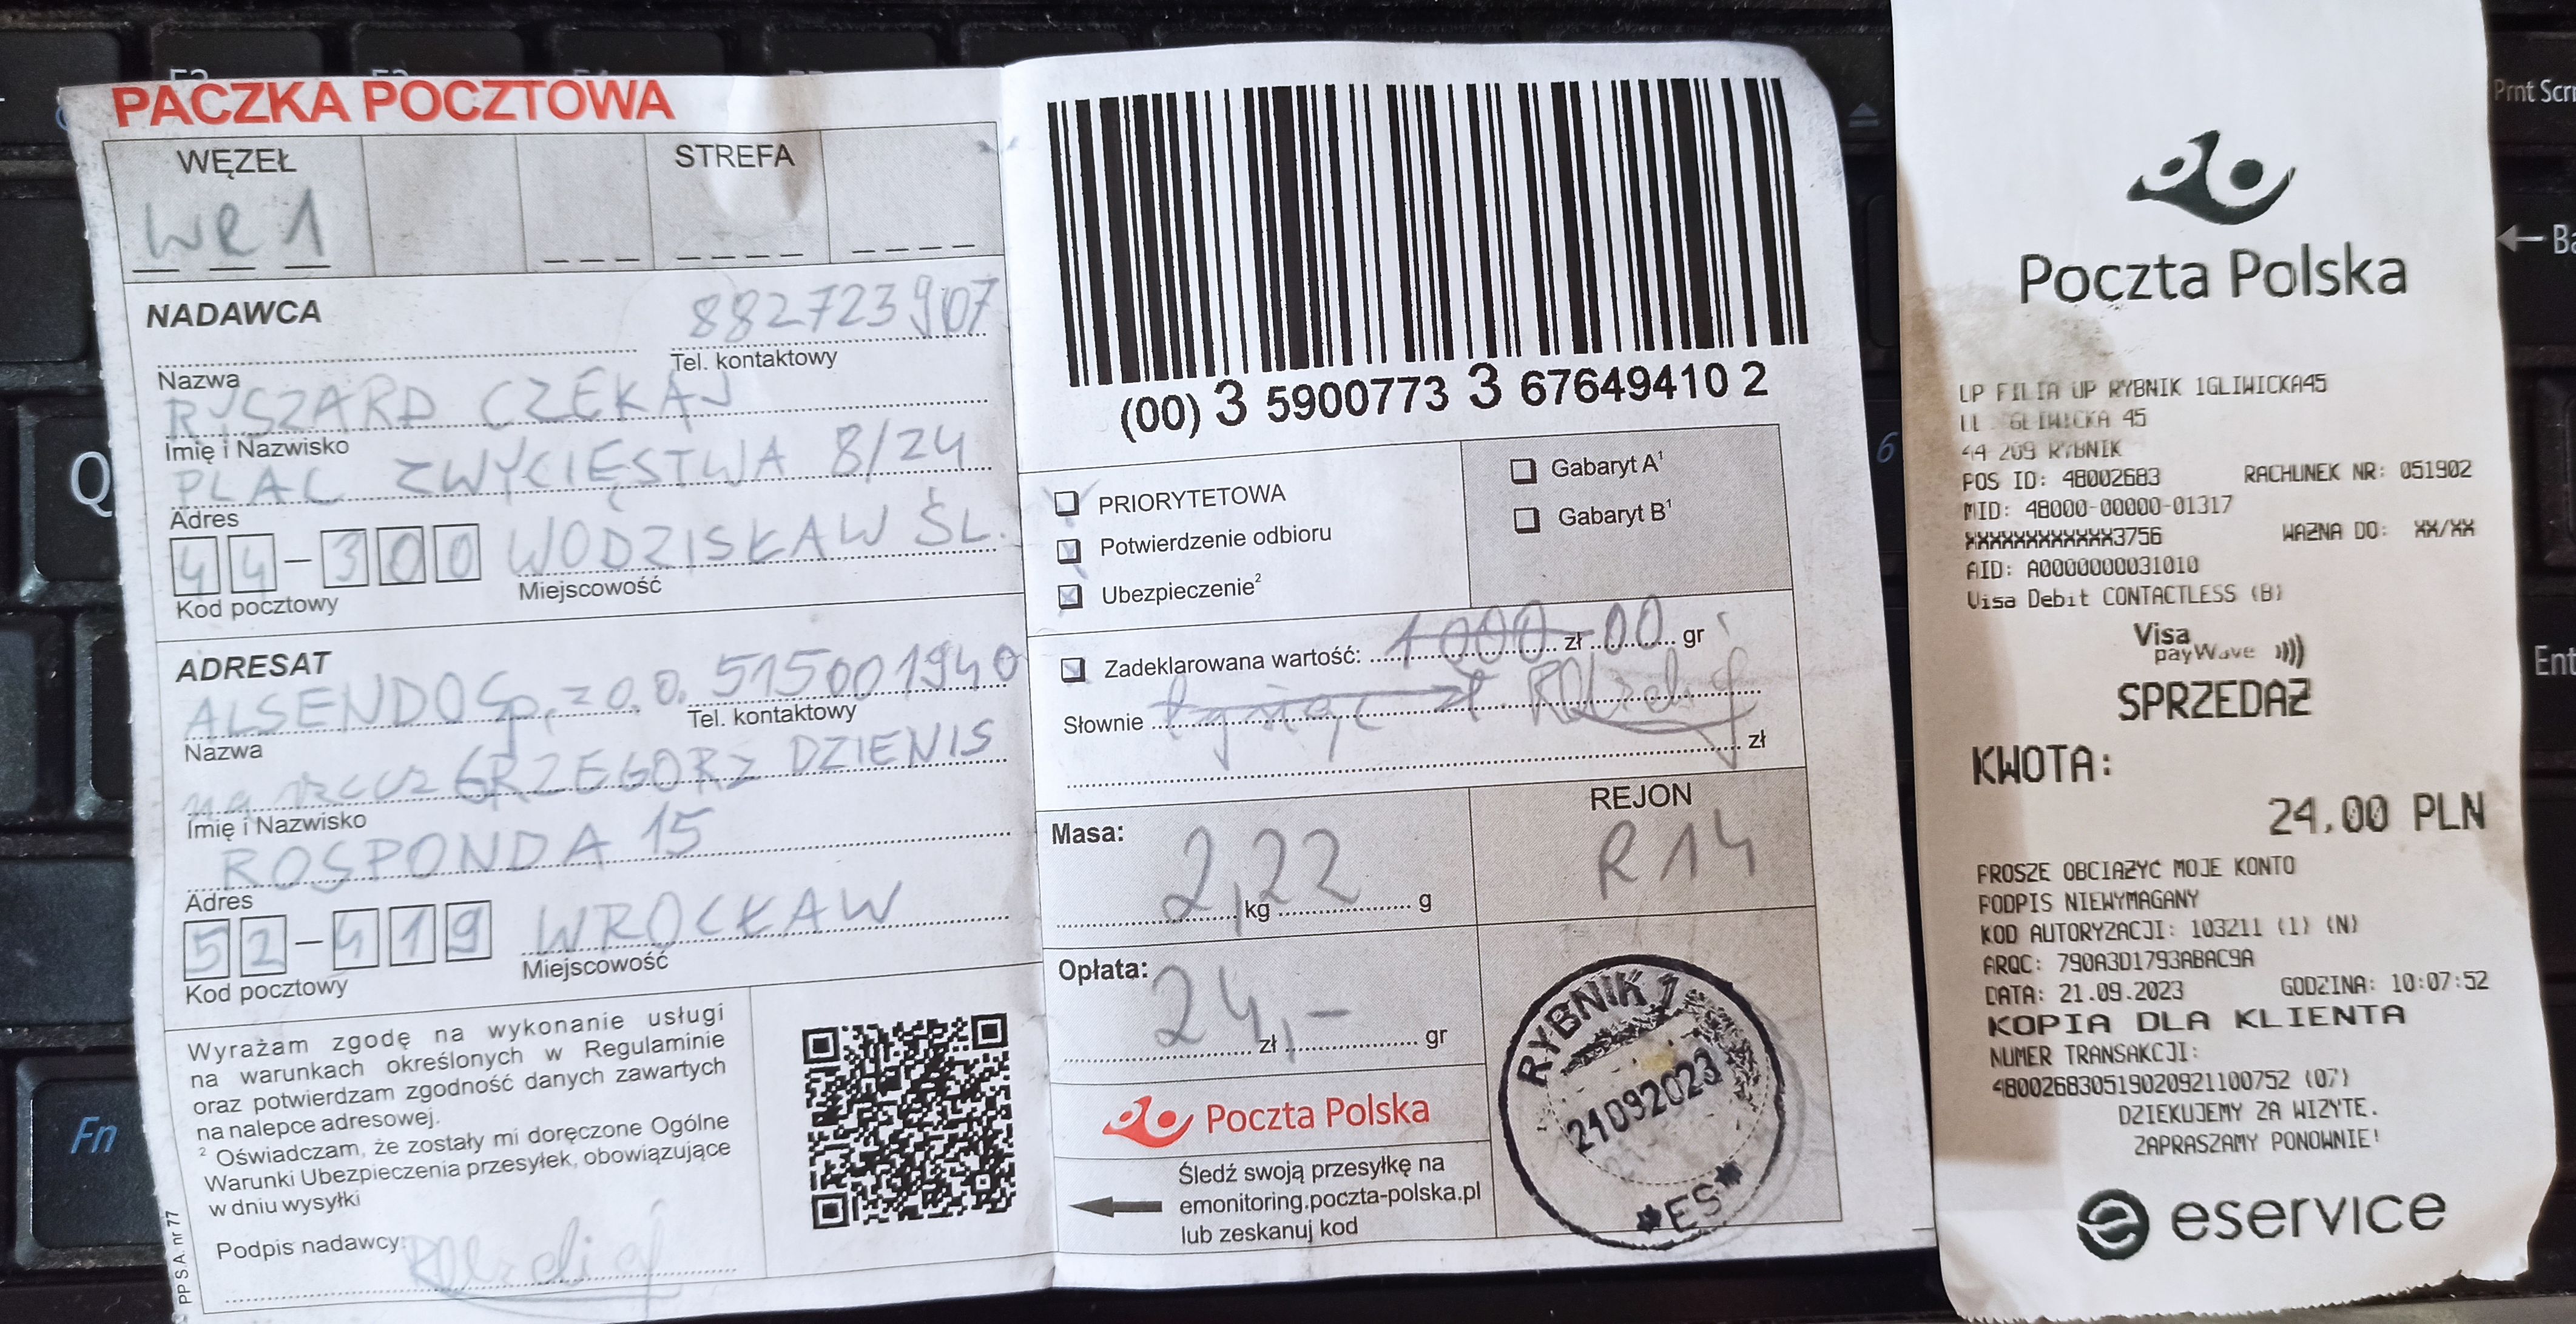 PACZKA POCZTOWA
WĘZEŁ
STREFA
WR 1
NADAWCA
882723907
Nazwa
Tel. kontaktowy
RYSZARD CZEKAJ
Imię i Nazwisko
PLAC ZWYCIĘSTWA 8/24
Adres
44-300 WODZISŁAW ŚL.
Kod pocztowy
Miejscowość
ADRESAT
ALSENDO Sp. z o.o. 515001940
Nazwa
Tel. kontaktowy
na rzecz GRZEGORZ DZIENIS
Imię i Nazwisko
ROSPONDA 15
Adres
52-419 WROCŁAW
Kod pocztowy
Miejscowość
Wyrażam zgodę na wykonanie usługi
na warunkach określonych w Regulaminie
oraz potwierdzam zgodność danych zawartych
na nalepce adresowej.
² Oświadczam, że zostały mi doręczone Ogólne
Warunki Ubezpieczenia przesyłek, obowiązujące
w dniu wysyłki
Podpis nadawcy:
PP S.A. nr 77
(00) 3 5900773 3 67649410 2
PRIORYTETOWA
Potwierdzenie odbioru
Ubezpieczenie²
Gabaryt A¹
Gabaryt B¹
Zadeklarowana wartość: 1000 zł 00 gr
Słownie tysiąc zł.
zł
Masa:
2,22
kg
g
REJON
R 14
Opłata:
24,-
zł
gr
RYBNIK 1
21092023
ES
Poczta Polska
Śledź swoją przesyłkę na
emonitoring.poczta-polska.pl
lub zeskanuj kod
Poczta Polska
UP FILIA UP RYBNIK 1GLIWICKA45
UL GLIWICKA 45
44 209 RYBNIK
POS ID: 48002683 RACHUNEK NR: 051902
MID: 48000-00000-01317
XXXXXXXXXXXX3756 WAŻNA DO: XX/XX
AID: A0000000031010
Visa Debit CONTACTLESS (B)
Visa
payWave
SPRZEDAŻ
KWOTA:
24,00 PLN
PROSZE OBCIĄŻYĆ MOJE KONTO
PODPIS NIEWYMAGANY
KOD AUTORYZACJI: 103211 (1) (N)
ARQC: 790A3D1793ABAC9A
DATA: 21.09.2023 GODZINA: 10:07:52
KOPIA DLA KLIENTA
NUMER TRANSAKCJI:
480026830519020921100752 (07)
DZIEKUJEMY ZA WIZYTE.
ZAPRASZAMY PONOWNIE!
eservice
Q
Fn
6
Prnt Scrn